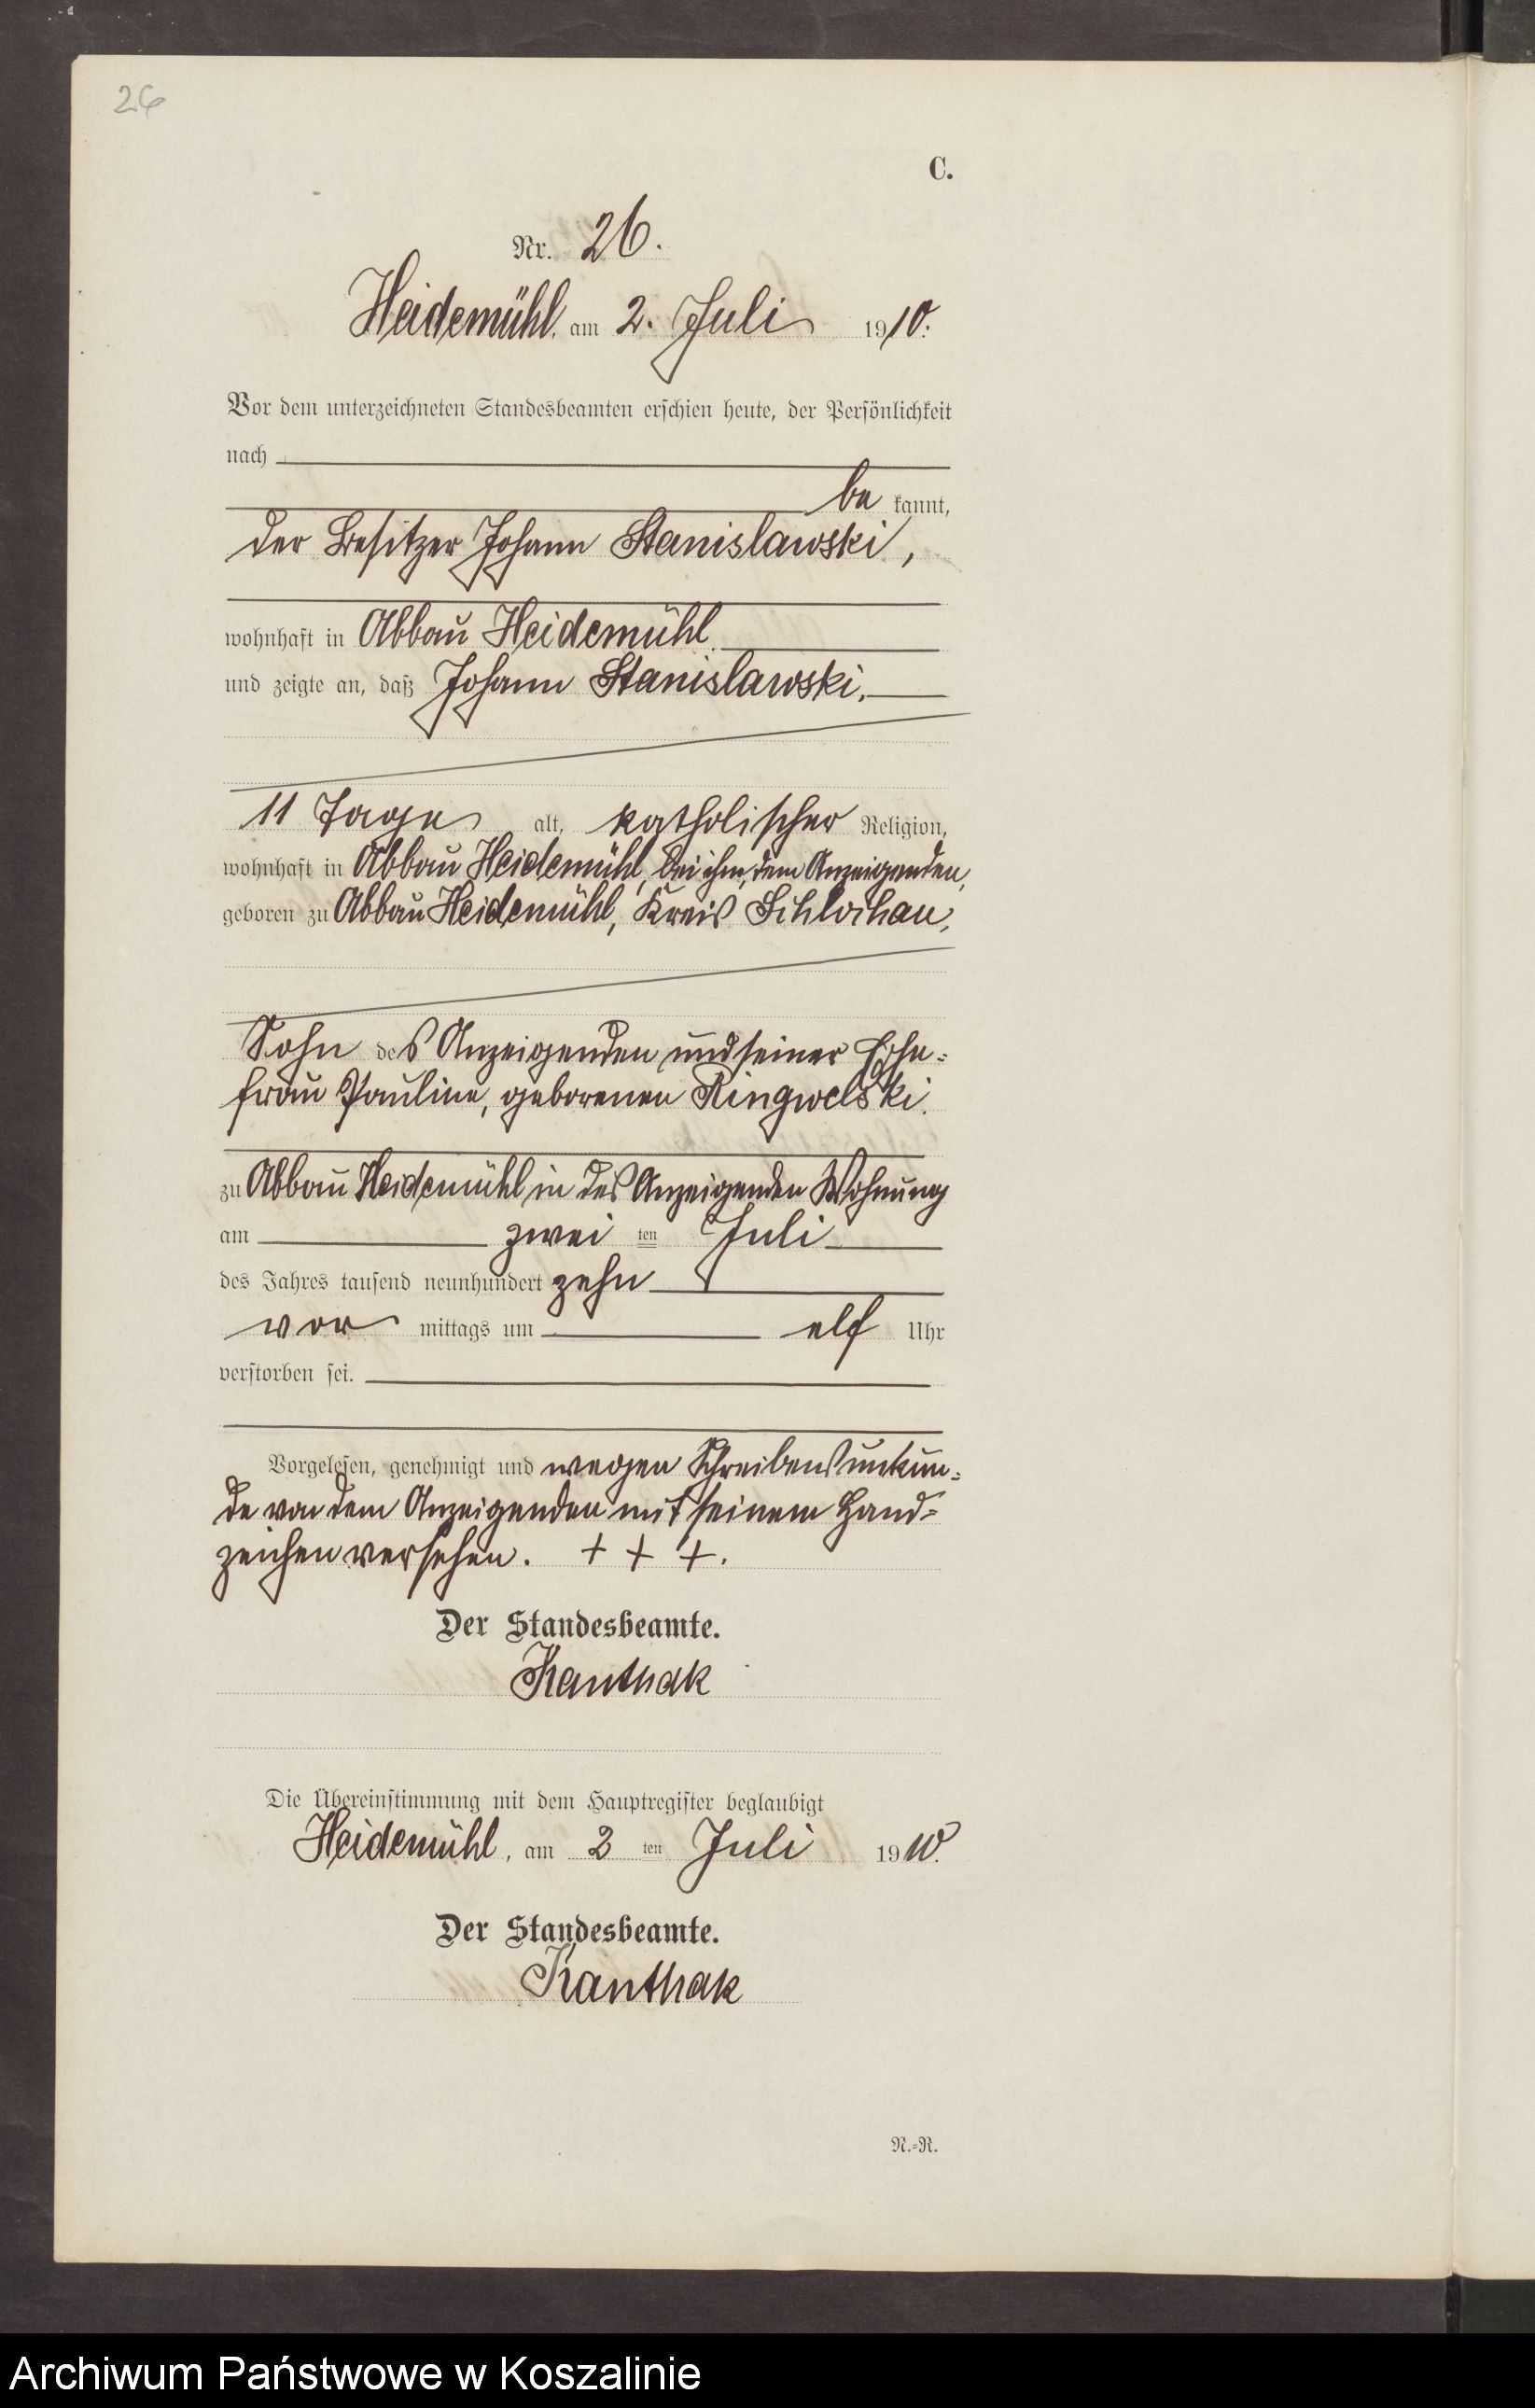 26
C.
Nr. 26.
Heidemühl, am 2. Juli 1910.
Vor dem unterzeichneten Standesbeamten erschien heute, der Persönlichkeit
nach
be kannt,
der Besitzer Johann Stanislawski,
wohnhaft in Abbau Heidemühl.
und zeigte an, daß Johann Stanislawski,
11 Tage alt, katholischer Religion,
wohnhaft in Abbau Heidemühl, bei ihm, dem Anzeigenden,
geboren zu Abbau Heidemühl, Kreis Schlochau,
Sohn des Anzeigenden und seiner Ehe-
frau Pauline, geborenen Ringwelski.
zu Abbau Heidemühl in des Anzeigenden Wohnung
am zwei ten Juli
des Jahres tausend neunhundert zehn
vor mittags um elf Uhr
verstorben sei.
Vorgelesen, genehmigt und wegen Schreibensunkun-
de von dem Anzeigenden mit seinem Hand-
zeichen versehen. + + +.
Der Standesbeamte.
Kanthak
Die Übereinstimmung mit dem Hauptregister beglaubigt
Heidemühl, am 2 ten Juli 1910.
Der Standesbeamte.
Kanthak
N.-R.
Archiwum Państwowe w Koszalinie